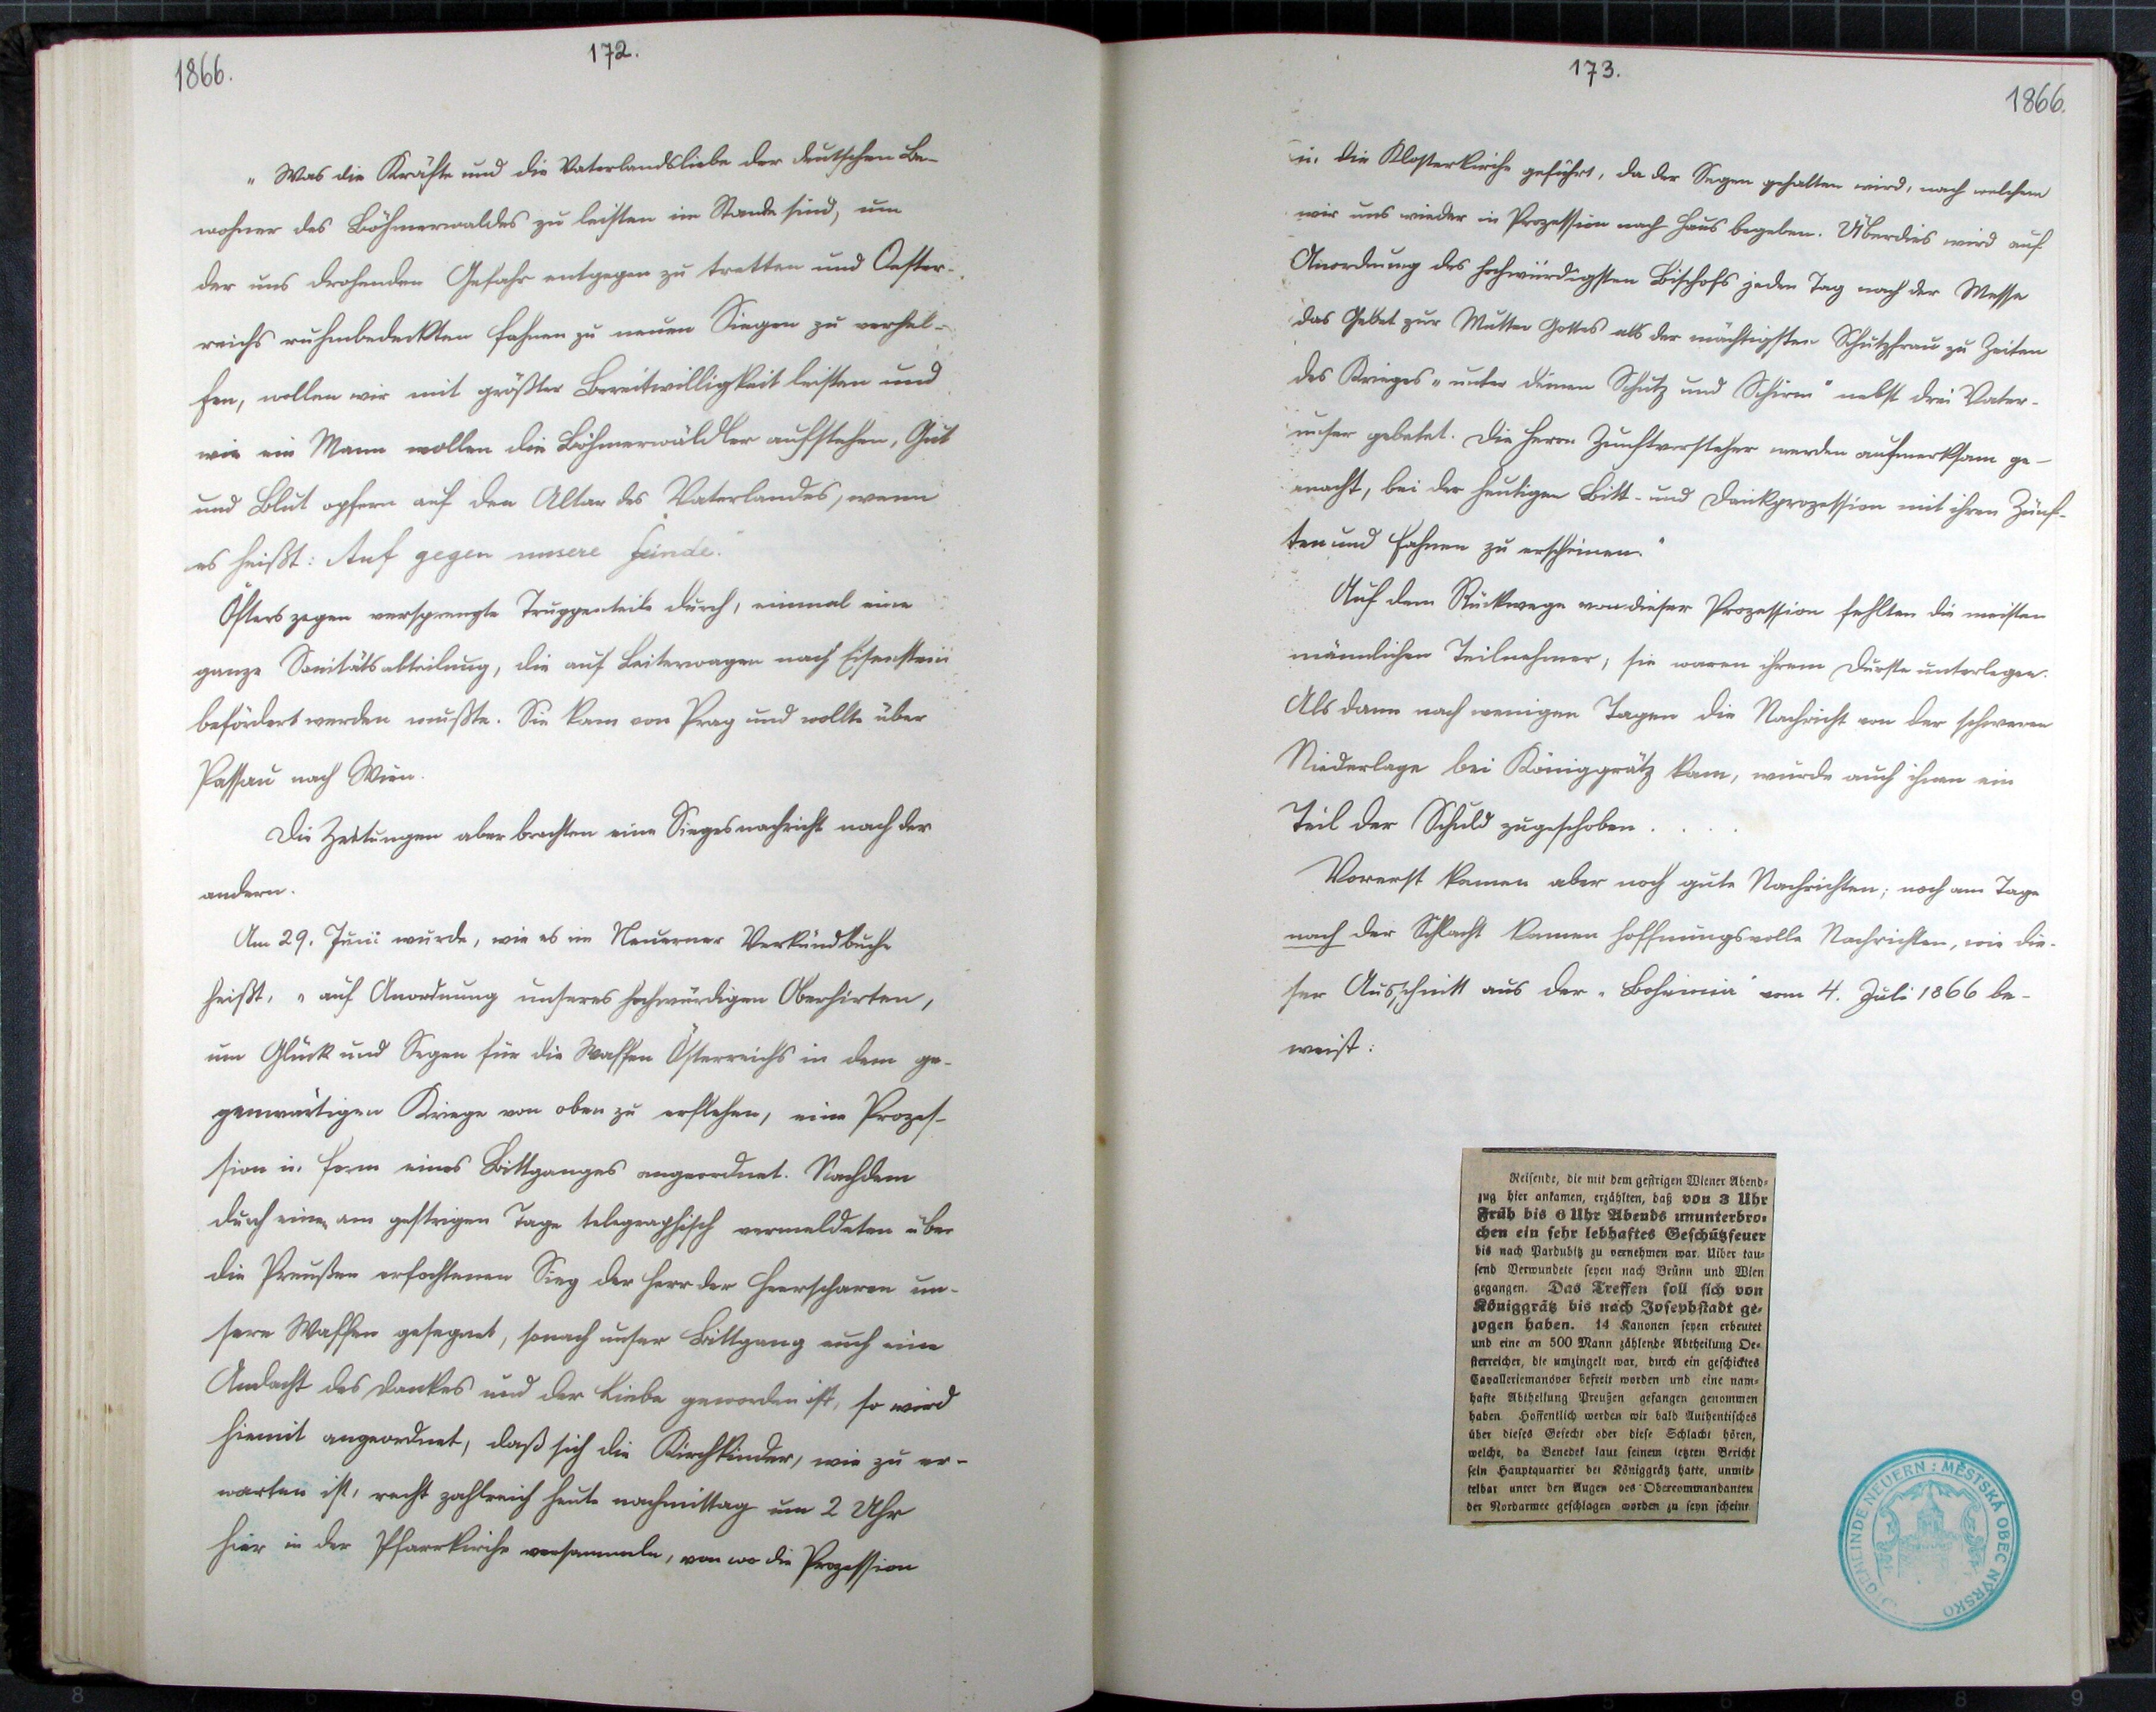 1866.
172.
„Was die Kräfte und die Vaterlandsliebe der deutschen Be-
wohner des Böhmerwaldes zu leisten im Stande sind, um
der uns drohenden Gefahr entgegen zu tretten und Oester-
reichs ruhmbedeckten Fahnen zu neuen Siegen zu verhel-
fen, wollen wir mit größter Bereitwilligkeit leisten und
wie ein Mann wollen die Böhmerwäldler aufstehen, Gut
und Blut opfern auf den Altar des Vaterlandes, wenn
es heißt: Auf gegen unsere Feinde."
Öfters zogen versprengte Truppenteile durch, einmal eine
ganze Sanitätsabteilung, die auf Leiterwagen nach Eisenstein
befördert werden mußte. Sie kam von Prag und wollte über
Passau nach Wien.
Die Zeitungen aber brachten eine Siegesnachricht nach der
andern.
Am 29. Juni wurde, wie es im Neuerner Verkündbuche
heißt, „auf Anordnung unseres hochwürdigen Oberhirten,
um Glück und Segen für die Waffen Österreichs in dem ge-
genwärtigen Kriege von oben zu erflehen, eine Prozes-
sion in Form eines Bittganges angeordnet. Nachdem
durch einen am gestrigen Tage telegraphisch vermeldeten über
die Preußen erfochtenen Sieg der Herr der Heerscharen un-
sere Waffen gesegnet, sonach unser Bittgang auch eine
Andacht des Dankes und der Liebe geworden ist, so wird
hiemit angeordnet, daß sich die Kirchkinder, wie zu er-
warten ist, recht zahlreich heute nachmittag um 2 Uhr
hier in der Pfarrkirche versammeln, von wo die Prozession
173.
1866.
in die Klosterkirche geführt, da der Segen gehalten wird, nach welchem
wir uns wieder in Prozession nach Haus begeben. Überdies wird auf
Anordnung des hochwürdigsten Bischofs jeden Tag nach der Messe
das Gebet zur Mutter Gottes als der mächtigsten Schutzfrau zu Zeiten
des Krieges „unter deinen Schutz und Schirm" nebst drei Vater-
unser gebetet. Die Herrn Zunftvorsteher werden aufmerksam ge-
macht, bei der heutigen Bitt- und Dankprozession mit ihren Zünf-
ten und Fahnen zu erscheinen."
Auf dem Rückwege von dieser Prozession fehlten die meisten
männlichen Teilnehmer; sie waren ihrem Durste unterlegen.
Als dann nach wenigen Tagen die Nachricht von der schweren
Niederlage bei Königgrätz kam, wurde auch ihnen ein
Teil der Schuld zugeschoben. . . . .
Vorerst kamen aber noch gute Nachrichten; noch am Tage
nach der Schlacht kamen hoffnungsvolle Nachrichten, wie die-
ser Ausschnitt aus der „Bohemia" vom 4. Juli 1866 be-
weist:
Reisende, die mit dem gestrigen Wiener Abend-
zug hier ankamen, erzählten, daß von 3 Uhr
Früh bis 6 Uhr Abends ununterbro-
chen ein sehr lebhaftes Geschützfeuer
bis nach Pardubitz zu vernehmen war. Uiber tau-
send Verwundete seyen nach Brünn und Wien
gegangen. Das Treffen soll sich von
Königgrätz bis nach Josephstadt ge-
zogen haben. 14 Kanonen seyen erbeutet
und eine an 500 Mann zählende Abtheilung Oe-
sterreicher, die umzingelt war, durch ein geschicktes
Cavalleriemanöver befreit worden und eine nam-
hafte Abtheilung Preußen gefangen genommen
haben. Hoffentlich werden wir bald Authentisches
über dieses Gefecht oder diese Schlacht hören,
welche, da Benedek laut seinem letzten Bericht
sein Hauptquartier bei Königgrätz hatte, unmit-
telbar unter den Augen des Obercommandanten
der Nordarmee geschlagen worden zu seyn scheint
NEUERN : MĚSTSKÁ OBEC NÝRSKO